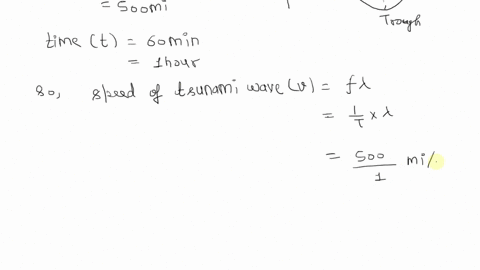 = 500mi
Trough
time (t) = 60min
= 1hour
so, speed of tsunami wave (v) = fλ
= 1/T × λ
= 500/1 mi/